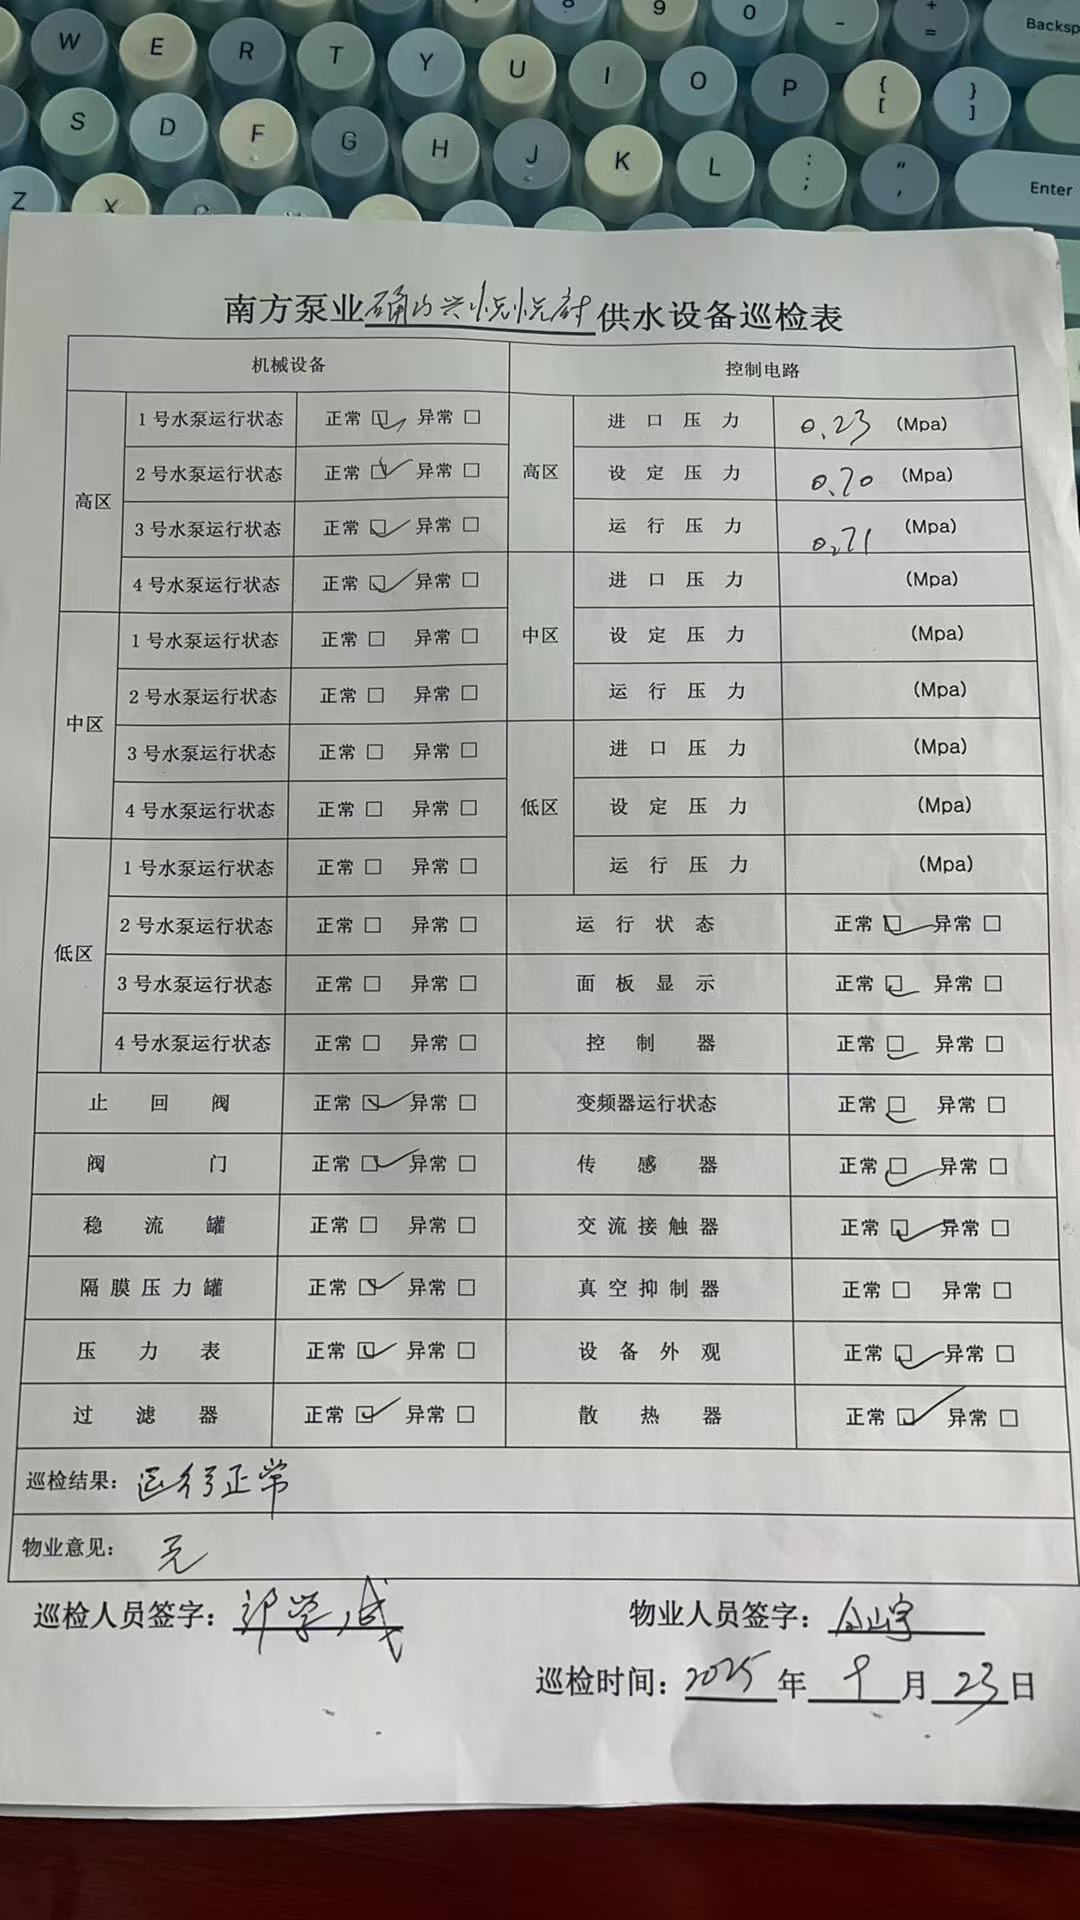 W E R T Y U I 8 9 O P 0 - _ + = Backsp
S D F G H J K L : ; " , { [ } ] Enter
Z X
南方泵业供水设备巡检表
机械设备 控制电路
高区 1号水泵运行状态 正常☑ 异常□ 高区 进口压力 0.23 (Mpa)
2号水泵运行状态 正常☑ 异常□ 设定压力 0.70 (Mpa)
3号水泵运行状态 正常☑ 异常□ 运行压力 0.71 (Mpa)
4号水泵运行状态 正常☑ 异常□ 中区 进口压力 (Mpa)
中区 1号水泵运行状态 正常□ 异常□ 设定压力 (Mpa)
2号水泵运行状态 正常□ 异常□ 运行压力 (Mpa)
3号水泵运行状态 正常□ 异常□ 低区 进口压力 (Mpa)
4号水泵运行状态 正常□ 异常□ 设定压力 (Mpa)
低区 1号水泵运行状态 正常□ 异常□ 运行压力 (Mpa)
2号水泵运行状态 正常□ 异常□ 运行状态 正常☑ 异常□
3号水泵运行状态 正常□ 异常□ 面板显示 正常☑ 异常□
4号水泵运行状态 正常□ 异常□ 控制器 正常☑ 异常□
止回阀 正常☑ 异常□ 变频器运行状态 正常☑ 异常□
阀门 正常☑ 异常□ 传感器 正常☑ 异常□
稳流罐 正常□ 异常□ 交流接触器 正常☑ 异常□
隔膜压力罐 正常☑ 异常□ 真空抑制器 正常□ 异常□
压力表 正常☑ 异常□ 设备外观 正常☑ 异常□
过滤器 正常☑ 异常□ 散热器 正常☑ 异常□
巡检结果: 运行正常
物业意见: 无
巡检人员签字: 物业人员签字:
巡检时间: 2025年9月23日